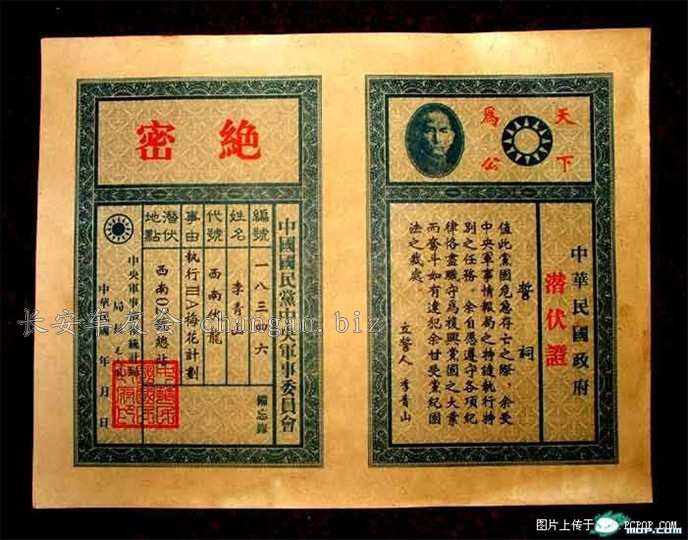 天下
為公
中華民國政府
潛伏證
誓詞
值此黨國危急存亡之際，余受
中央軍事情報局之特遣執行特
別之任務。余自愿遵守各項紀
律恪盡職守為複興黨國之大業
而奮斗如有違犯余甘受黨紀國
法之裁處。
立誓人 李青山
絕密
中國國民黨中央軍事委員會
備忘錄
編號 一八三四六
姓名 李青山
代號 西南伏龍
事由 執行ⅢA梅花計劃
潛伏地點 西南
總社
中央軍事
統計局
局
中華民國 年 月 日
长安车友会 changan.biz
图片上传于 PCPOP.COM
MOP.COM